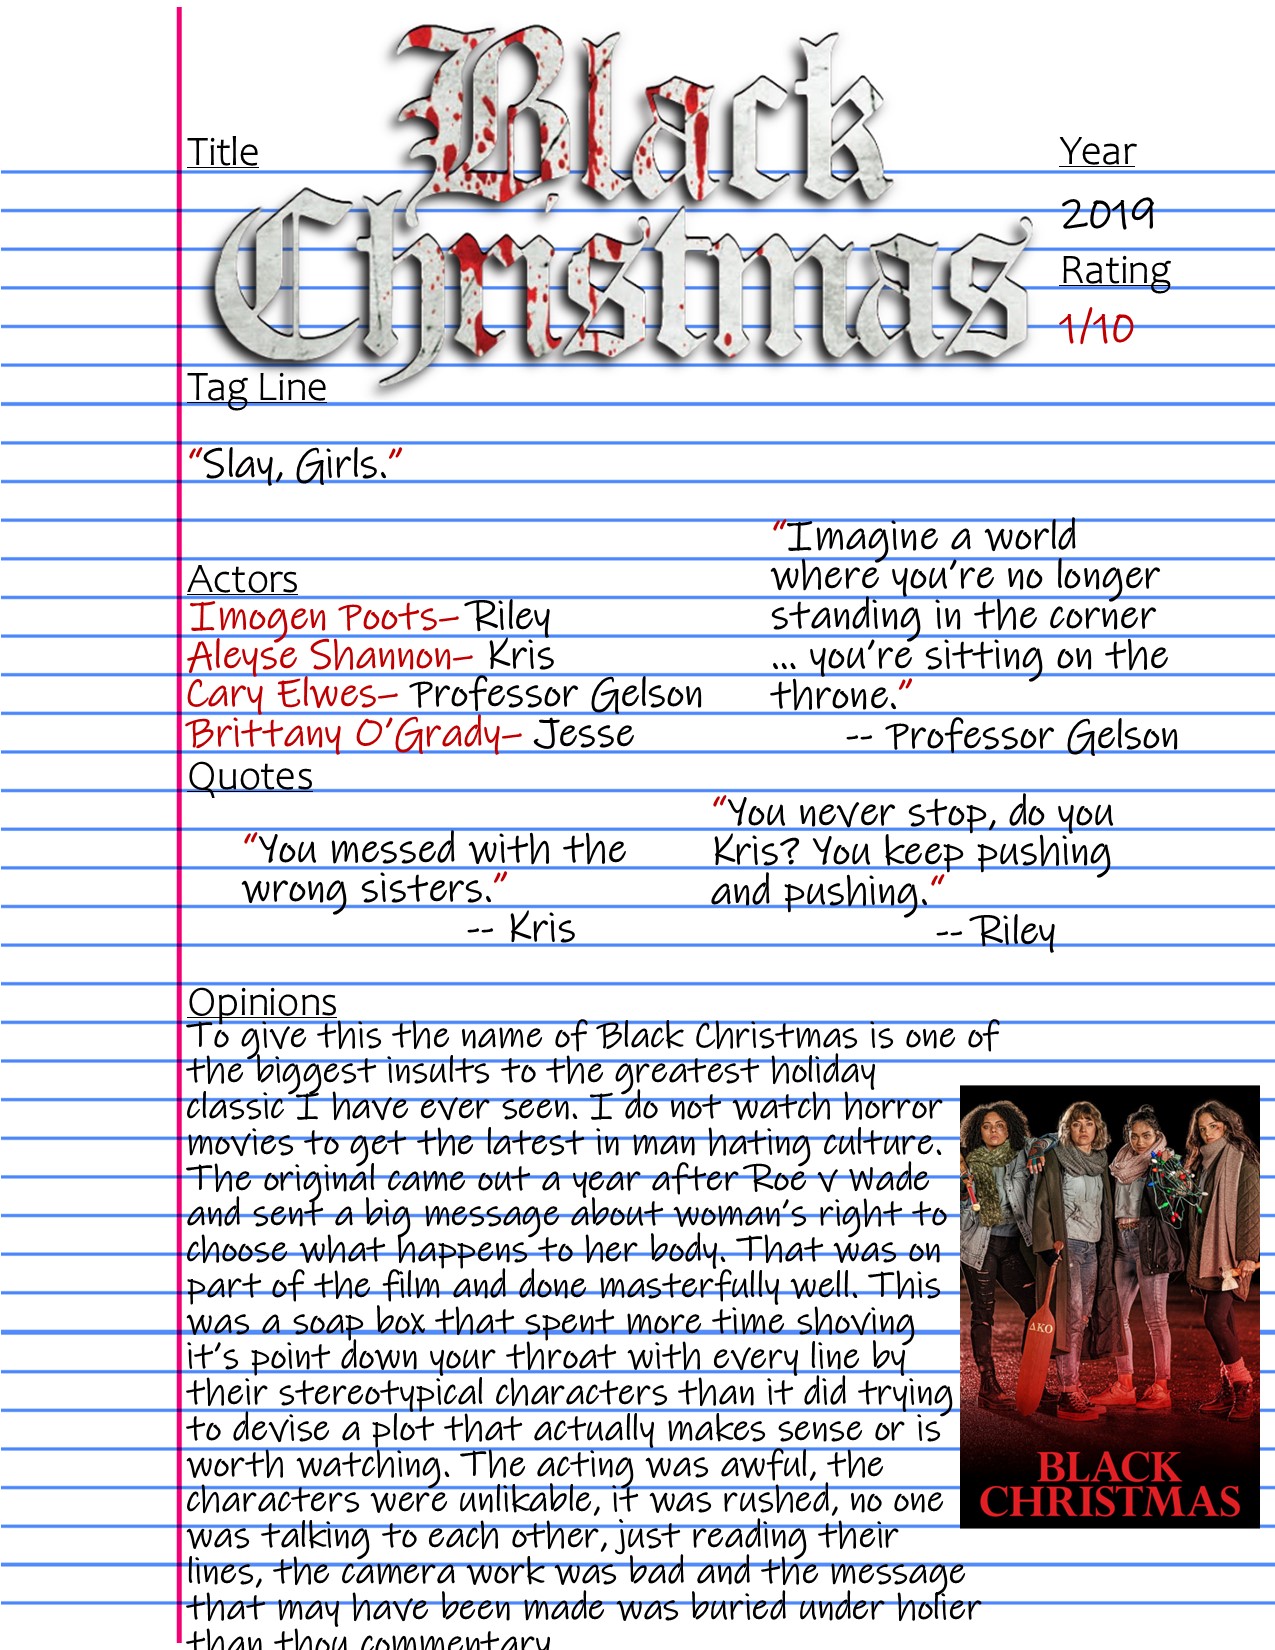 Black
Christmas
Title
Year
2019
Rating
1/10
Tag Line
"Slay, Girls."
Actors
Imogen Poots– Riley
Aleyse Shannon– Kris
Cary Elwes– Professor Gelson
Brittany O'Grady– Jesse
"Imagine a world
where you're no longer
standing in the corner
... you're sitting on the
throne."
-- Professor Gelson
Quotes
"You messed with the
wrong sisters."
-- Kris
"You never stop, do you
Kris? You keep pushing
and pushing."
-- Riley
Opinions
To give this the name of Black Christmas is one of
the biggest insults to the greatest holiday
classic I have ever seen. I do not watch horror
movies to get the latest in man hating culture.
The original came out a year after Roe v Wade
and sent a big message about woman's right to
choose what happens to her body. That was on
part of the film and done masterfully well. This
was a soap box that spent more time shoving
it's point down your throat with every line by
their stereotypical characters than it did trying
to devise a plot that actually makes sense or is
worth watching. The acting was awful, the
characters were unlikable, it was rushed, no one
was talking to each other, just reading their
lines, the camera work was bad and the message
that may have been made was buried under holier
than thou commentary
ΔKO
BLACK
CHRISTMAS